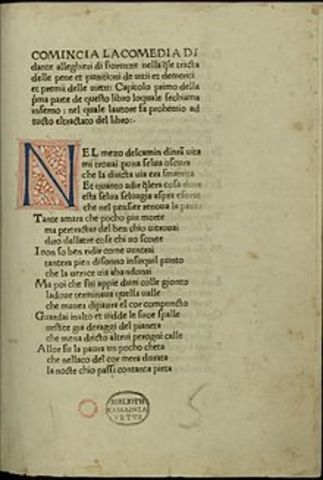 COMINCIA LA COMEDIA DI
dante alleghieri di fiorenze nella qle tracta
delle pene et punitioni de uitii et demeriti
et premii delle uirtu: Capitolo primo della
pma parte de questo libro loquale sechiama
inferno: nel quale lautore fa prohemio ad
tucto eltractato del libro:·
NEL mezo delcamin dinra uita
mi trouai puna selua oscura
che la diricta uia era smarrita
Et quanto adir qlera cosa dura
esta selua seluagia aspra eforte
che nel pensier renoua la paura
Tante amara che pocho piu morte
ma pertractar del ben chio uitrouai
diro dellatre cose chi uo scorte
I non so ben ridir come uentrai
tantera pien disonno insuquel punto
che la uerace uia abandonai
Ma poi che fui appie dum colle gionto
ladoue terminaua quella ualle
che mauea dipaura el cor compuncto
Guardai inalto et uidde le sue spalle
uestite gia deraggi del pianeta
che mena dricto altrui perogni calle
Allor fu la paura un pocho cheta
che nellaco del cor mera durata
la nocte chio passi contanta pieta
BIBLIOTH
UETUS